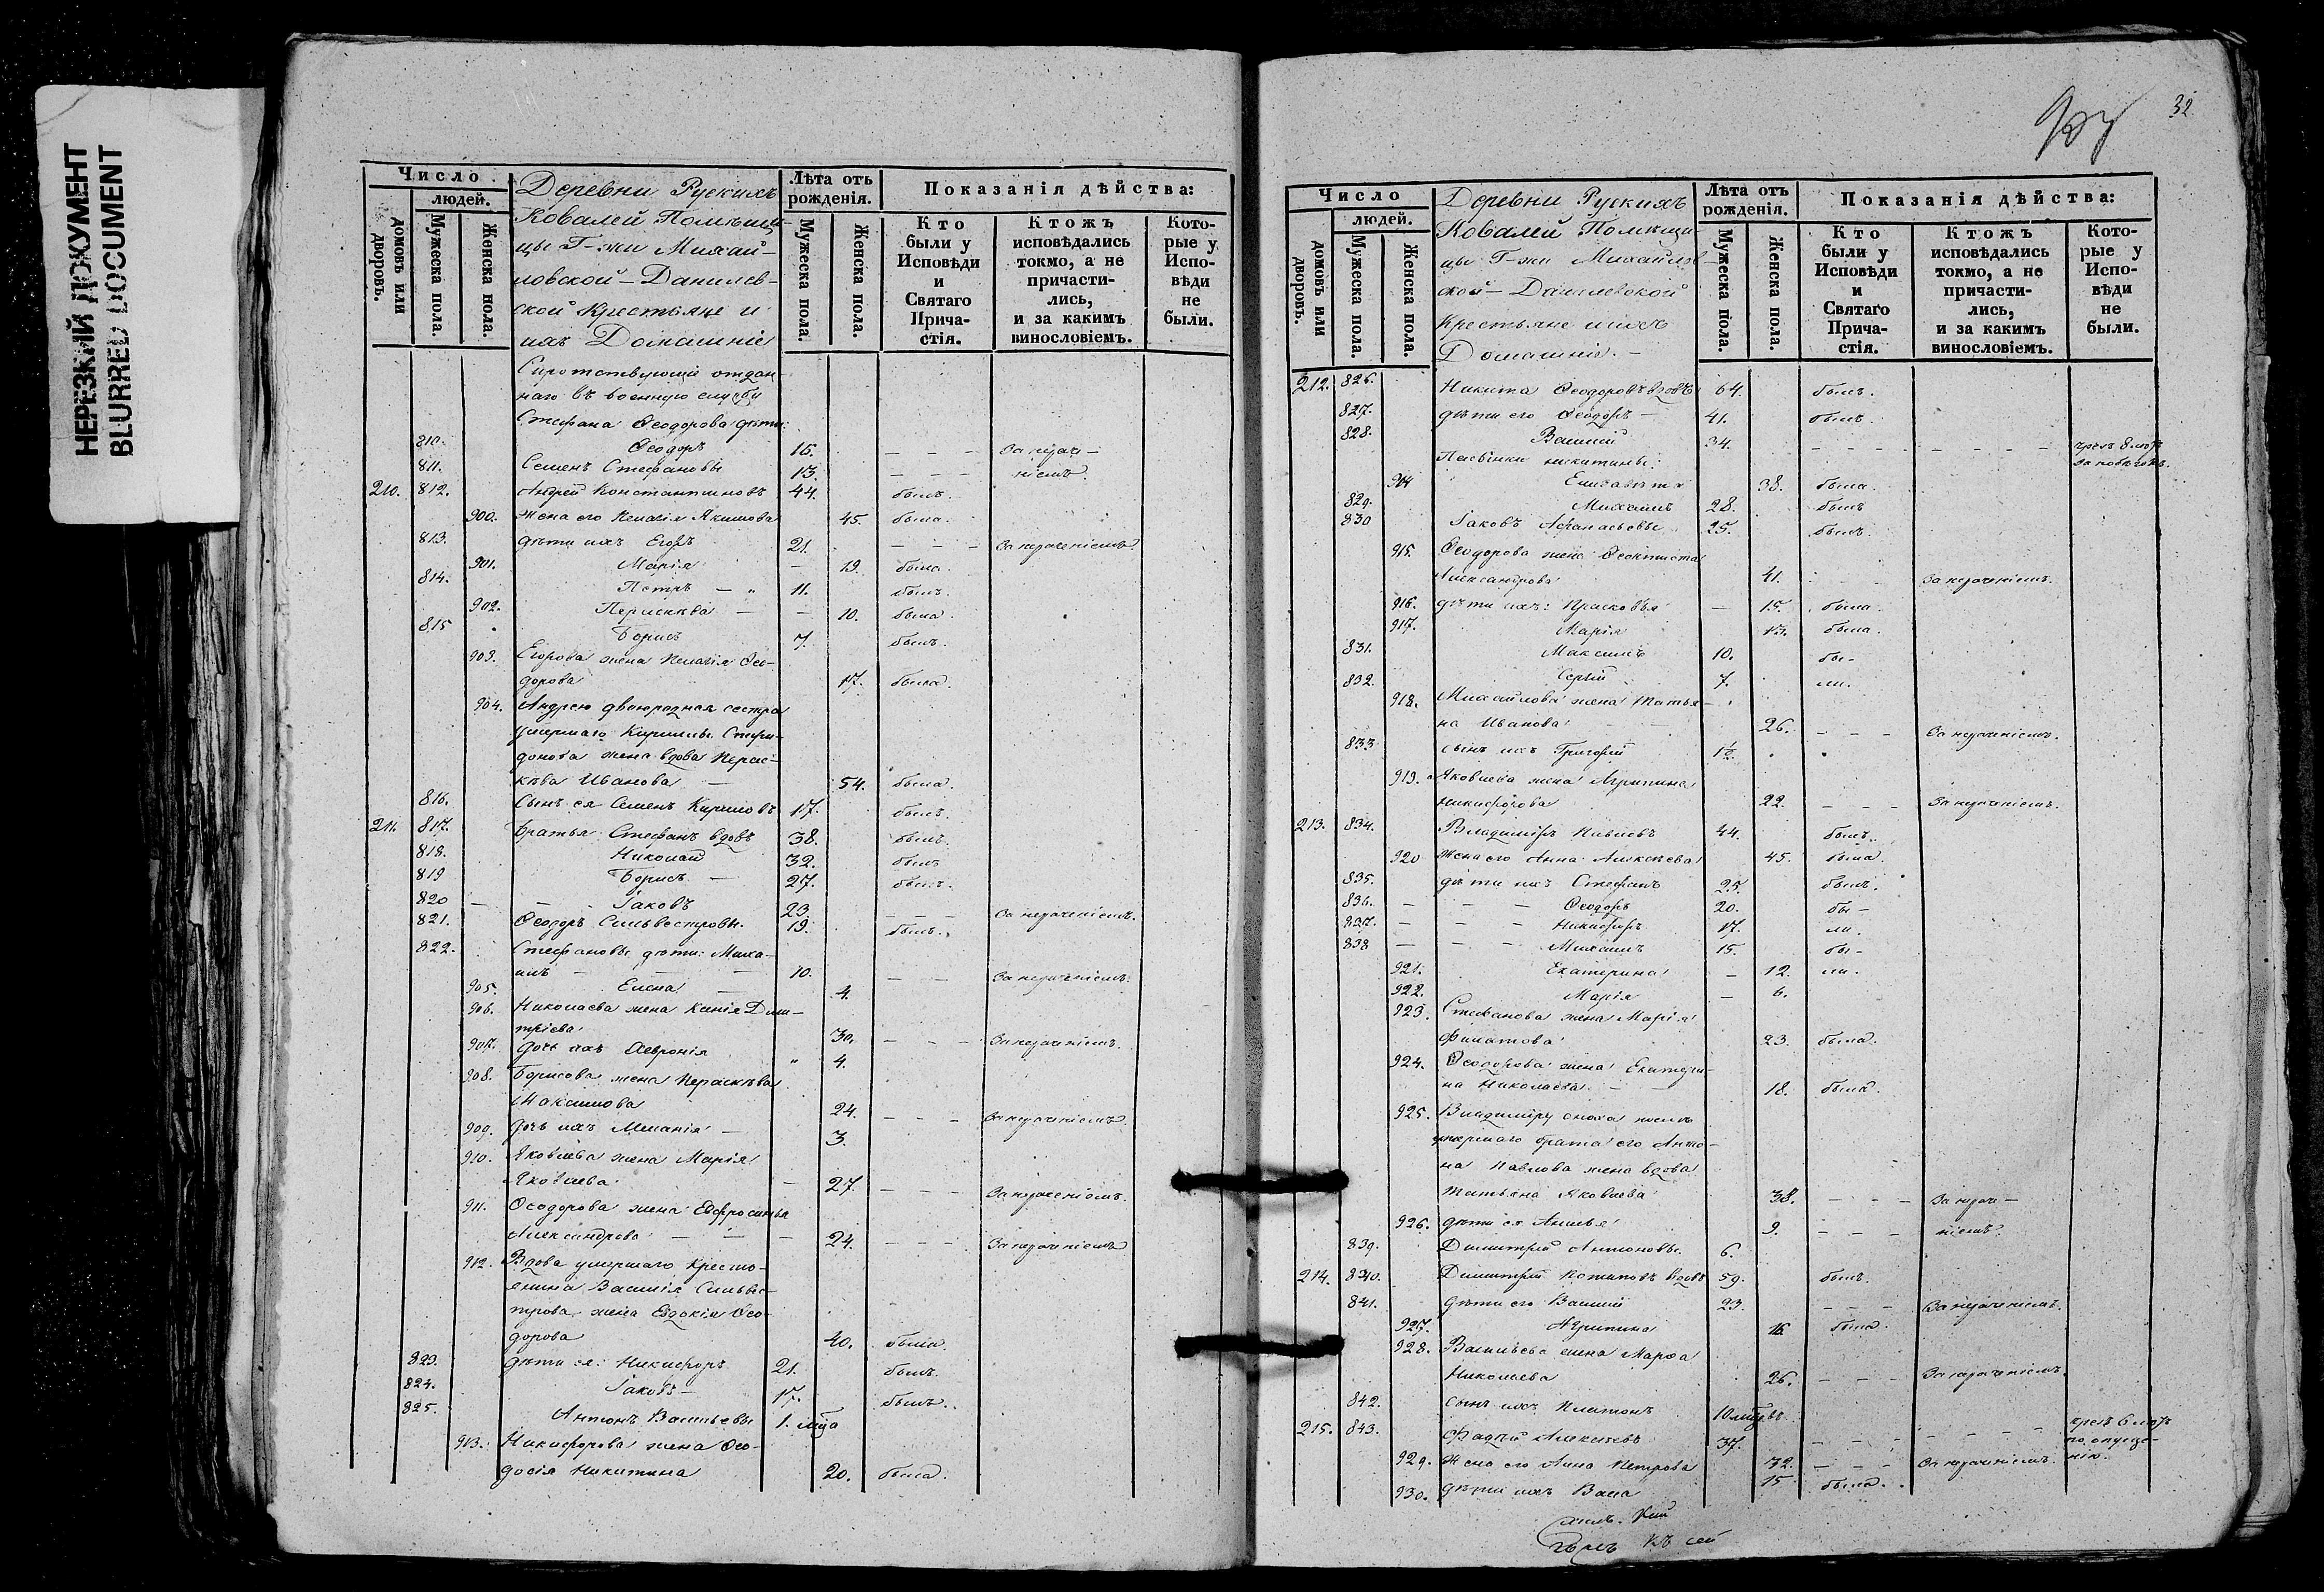 НЕРЕЗКИЙ ДОКУМЕНТ
BLURRED DOCUMENT
Число
людей.
домовъ или дворовъ.
Мужеска пола.
Женска пола.
Деревни Рускихъ
Ковалей Помѣщи-
цы Г-жи Михай-
ловской-Данилев-
ской Крестьяне и
ихъ Домашніе
Лѣта отъ рожденія.
Мужеска пола.
Женска пола.
Показанія дѣйства:
Кто были у Исповѣди и Святаго Прича-стія.
Ктожъ исповѣдались токмо, а не причасти-лись, и за какимъ винословіемъ.
Кото-рые у Испо-вѣди не были.
Сиротствующіе отдан-
наго въ военную службу
Стефана Ѳеодорова дѣти:
810. Ѳеодоръ 16. - - - За нерач-
811. Семенъ Стефановы 13. - - - ніемъ.
210. 812. Андрей Константиновъ 44. былъ.
900. Жена его Пелагія Акимова 45. была.
813. дѣти ихъ Егоръ 21. - - - За нераченіемъ
901. Марія - 19. была.
814. Петръ - " 11. былъ.
902. Параскева - - 10. была.
815 Борисъ 7. былъ.
903. Егорова жена Пелагія Ѳео-
дорова 17. была.
904. Андрею двоюродная сестра
умершаго Кирилы Спири-
донова жена вдова Парас-
кѣва Иванова - 54. была.
816. Сынъ ея Семенъ Кириловъ 17. былъ.
211. 817. Братья: Стефанъ вдовъ 38. былъ.
818. Николай 32. былъ
819 Борисъ - 27. былъ.
820 - - - Іаковъ 23. - - - За нераченіемъ.
821. Ѳеодоръ Сильвестровы. 19. былъ.
822. Стефановы дѣти: Миха-
илъ - - - 10. - - За нераченіемъ.
905. Елена - 4.
906. Николаева жена Ксенія Дим-
тріева 30. - - - За нераченіемъ.
907. дочь ихъ Ѳевронія " 4.
908. Борисова жена Параскѣва
Максимова 24. - - - За нераченіемъ.
909. дочь ихъ Меланія - 3.
910. Яковлева жена Марія
Яковлева - 27. - - - За нераченіемъ.
911. Ѳеодорова жена Ефросинья
Александрова - - - 24. - - - За нераченіемъ
912. Вдова умершаго Кресть-
янина Василія Сильвес-
трова жена Евдокія Ѳео-
дорова 40. была.
823. дѣти ея: Никифоръ 21. былъ.
824. Іаковъ - 17. былъ.
825. Антонъ Васильевы 1. мца
913. Никифорова жена Ѳео-
досія Никитина 20. была.
32
Число
людей.
домовъ или дворовъ.
Мужеска пола.
Женска пола.
Деревни Рускихъ
Ковалей Помѣщи-
цы Г-жи Михайлов
ской-Данилевской
Крестьяне и ихъ
Домашніе. -
Лѣта отъ рожденія.
Мужеска пола.
Женска пола.
Показанія дѣйства:
Кто были у Исповѣди и Святаго Прича-стія.
Ктожъ исповѣдались токмо, а не причасти-лись, и за какимъ винословіемъ.
Кото-рые у Испо-вѣди не были.
212. 826. Никита Ѳеодоровъ вдовъ 64. былъ.
827. дѣти его Ѳеодоръ - 41. былъ.
828. Василій 34. - - - - - - чрезъ 8 лѣтъ
Пасынки Никитины:
914 Елисавета 38. была.
829. Михаилъ 28. былъ
830 Іаковъ Аѳанасьевы 25. былъ.
915. Ѳеодорова жена Ѳеоктиста
Александрова 41. - - - За нераченіемъ.
916. дѣти ихъ: Прасковья - 15. была.
917. Марія 13. была.
831. Максимъ 10. бы-
832. Сергій 7. ли.
918. Михайлова жена Татья-
на Иванова 26. - - - За нераченіемъ.
833 сынъ ихъ Григорій 1½.
919. Яковлева жена Агрипина
Никифорова 22. - - - За нераченіемъ.
213. 834. Владиміръ Павловъ 44. былъ.
920 Жена его Анна Алексѣева 45. была.
835. дѣти ихъ Стефанъ 25. былъ.
836. - - - Ѳеодоръ 20. бы-
837. - - - Никифоръ 17. ли.
838 - - - Михаилъ 15. бы-
921. Екатерина - 12. ли.
922. Марія - 6.
923. Стефанова жена Марія
Филатова 23. была.
924. Ѳеодорова жена Екатери-
на Николаева - 18. была.
925. Владиміру сноха
умершаго брата его Анто-
на Павлова жена вдова
Татьяна Яковлева 38. - - - За нерач-
926. дѣти ея Анна 9. - - - ніемъ.
839. Димитрій Антоновы. 6.
214. 840. Димитрій вдовъ 59. былъ.
841. дѣти его Василій 23. - - - За нераченіемъ.
927. Агрипина 16 была.
928. Васильева жена Марѳа
Николаева 26. - - - За нераченіемъ.
842. сынъ ихъ Платонъ 10 мцовъ
215. 843. Фадѣй Алексѣевъ 37. - - - - - - чрезъ 6 лѣтъ по опуще-
929. Жена его Анна Петрова 32. - - - За нераченіемъ. нію.
930. дѣти ихъ Васса 15 была.
къ сей